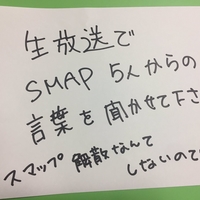 生放送で
SMAP 5人からの
言葉を聞かせて下さ
スマップ解散なんて
しないので